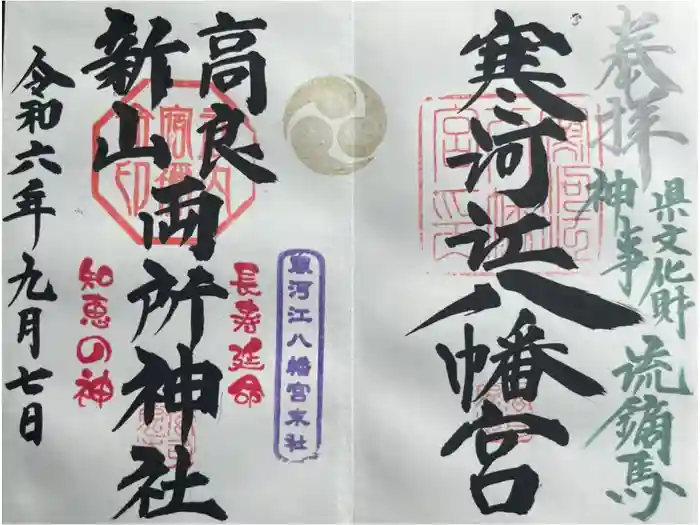 奉拝
県文化財
神事
流鏑馬
寒河江八幡宮
寒河江八幡宮末社
高良
新山両所神社
長寿延命
知恵の神
令和六年九月七日